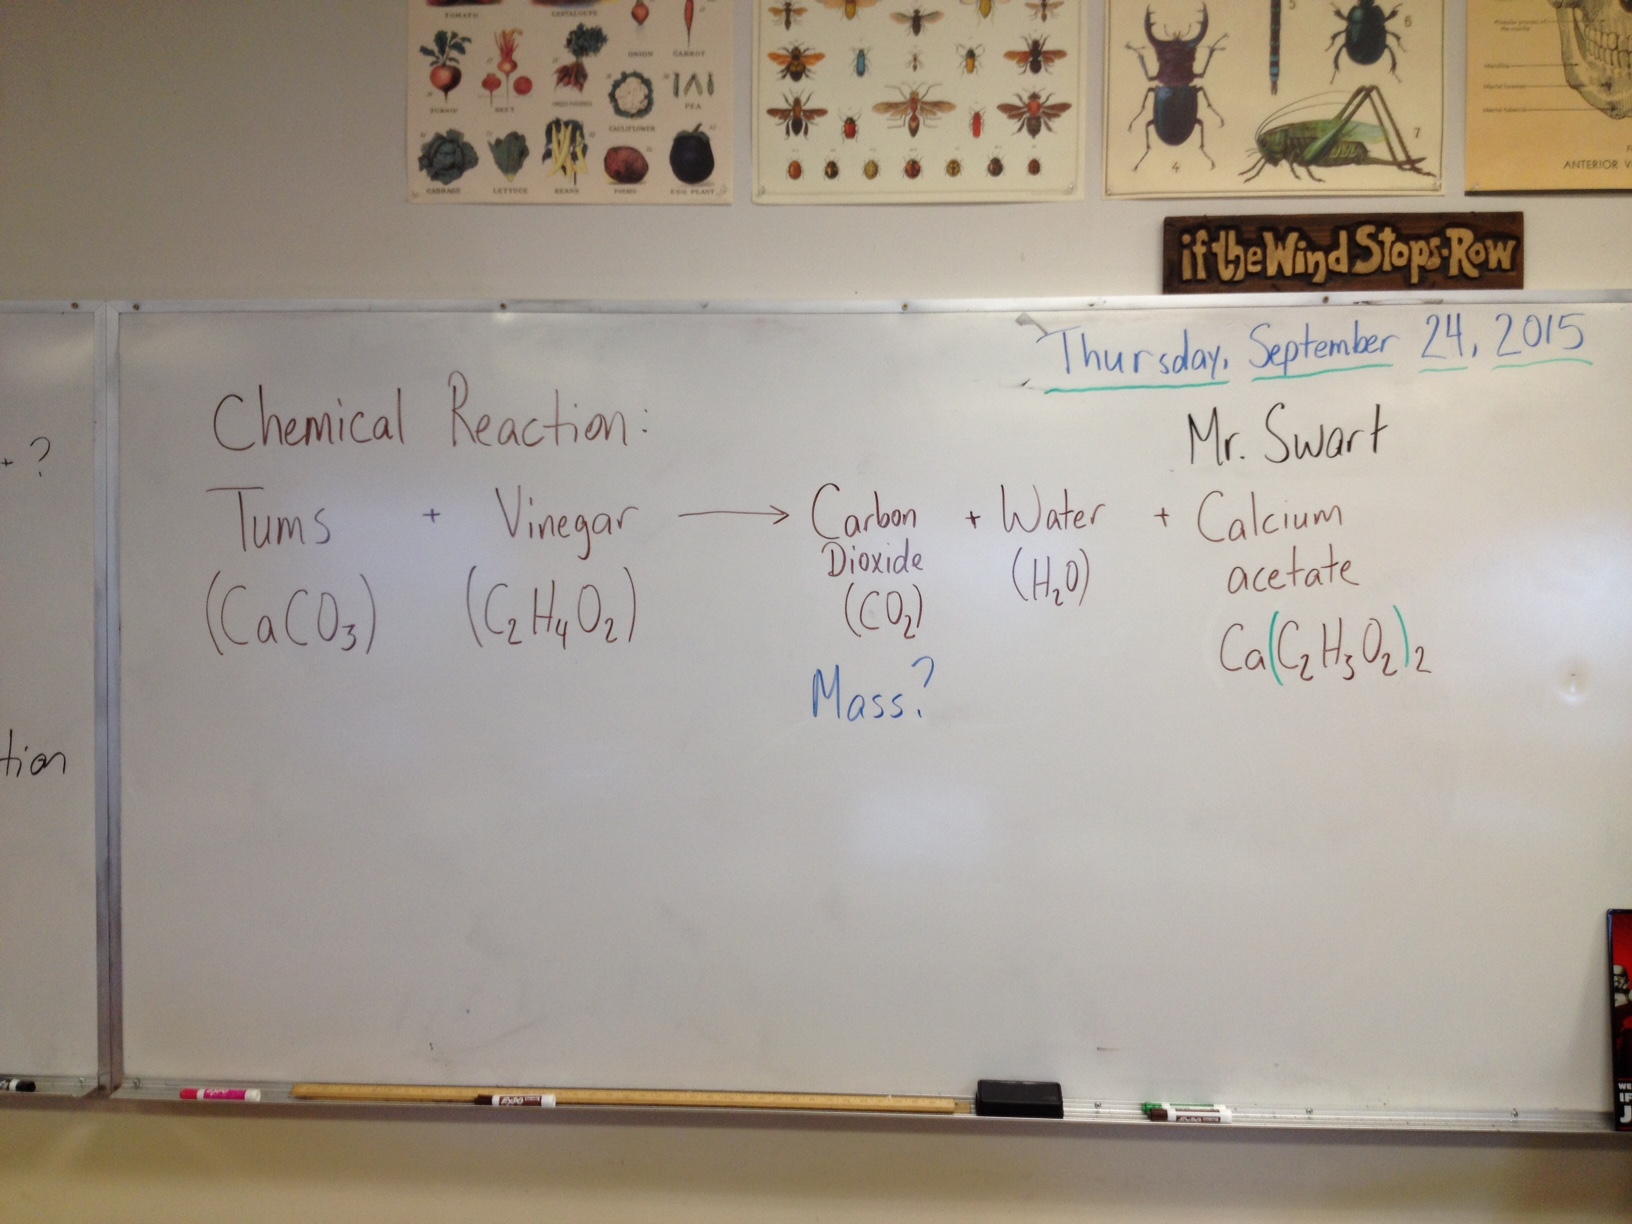 TOMATO
CANTALOUPE
ONION
CARROT
TURNIP
BEET
CAULIFLOWER
PEA
CABBAGE
LETTUCE
BEANS
POTATO
EGG PLANT
4
5
6
7
ANTERIOR V
if the Wind Stops-Row
Thursday, September 24, 2015
Mr. Swart
+ ?
tion
Chemical Reaction:
Tums + Vinegar → Carbon + Water + Calcium
Dioxide
acetate
(CaCO₃) (C₂H₄O₂) (CO₂) (H₂O)
Ca(C₂H₃O₂)₂
Mass?
EXPO
WE
IF
J